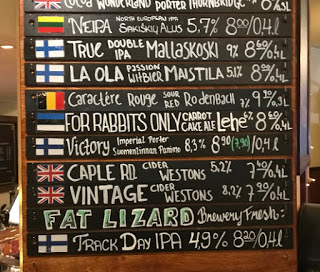 COCOA WONDERLAND PORTER THORNBRIDGE
NEIPA NORTH EUROPEAN IPA SAKIŠKIŲ ALUS 5,7% 800/0,4l
TRUE DOUBLE IPA MALLASKOSKI 9% 860/0,4l
LA OLA PASSION WITBIER MAISTILA 5.1% 8
Caractère Rouge SOUR RED RODENBACH 7% 9
FOR RABBITS ONLY CARROT CAKE ALE Lehe 6% 8
Victory Imperial Porter Suomenlinnan Panimo 8,3% 8,90 (7,90) /0,4l
CAPLE RD. CIDER WESTONS 5.2%
VINTAGE CIDER WESTONS 8,2%
FAT LIZARD Brewery Fresh:
TRACK DAY IPA 4,9% 820/0,4l